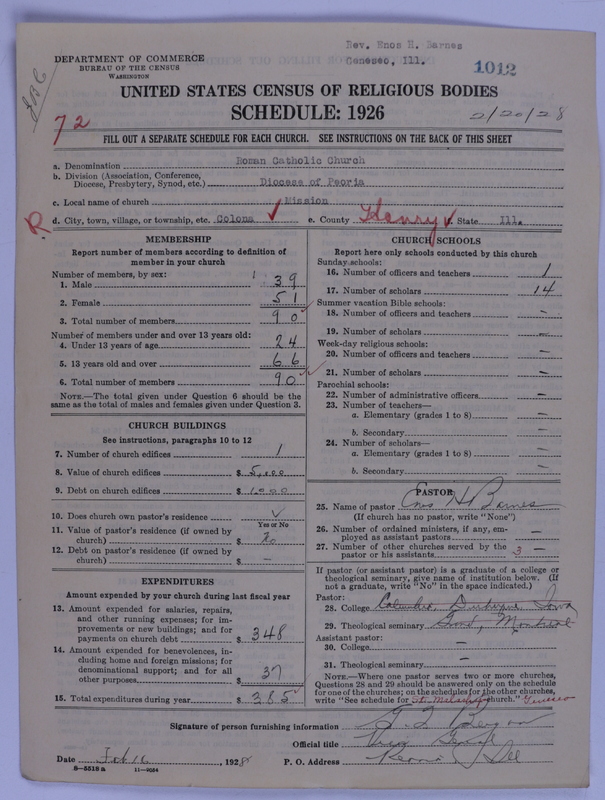 Rev. Enos H. Barnes
DEPARTMENT OF COMMERCE
BUREAU OF THE CENSUS
WASHINGTON
Geneseo, Ill.
1012
UNITED STATES CENSUS OF RELIGIOUS BODIES
SCHEDULE: 1926
2/20/28
72
FILL OUT A SEPARATE SCHEDULE FOR EACH CHURCH. SEE INSTRUCTIONS ON THE BACK OF THIS SHEET
a. Denomination Roman Catholic Church
b. Division (Association, Conference,
Diocese, Presbytery, Synod, etc.) Diocese of Peoria
c. Local name of church Mission
R
d. City, town, village, or township, etc. Colona ✓ e. County Henry ✓ f. State Ill.
MEMBERSHIP
Report number of members according to definition of
member in your church
Number of members, by sex:
1. Male 39
2. Female 51
3. Total number of members 90
Number of members under and over 13 years old:
4. Under 13 years of age 24
5. 13 years old and over 66
6. Total number of members 90
NOTE.—The total given under Question 6 should be the
same as the total of males and females given under Question 3.
CHURCH BUILDINGS
See instructions, paragraphs 10 to 12
7. Number of church edifices 1
8. Value of church edifices $ 5,000
9. Debt on church edifices $ 1000
10. Does church own pastor's residence ✓
Yes or No
11. Value of pastor's residence (if owned by
church) $ no
12. Debt on pastor's residence (if owned by
church) $ —
EXPENDITURES
Amount expended by your church during last fiscal year
13. Amount expended for salaries, repairs,
and other running expenses; for im-
provements or new buildings; and for
payments on church debt $ 348
14. Amount expended for benevolences, in-
cluding home and foreign missions; for
denominational support; and for all
other purposes $ 37
15. Total expenditures during year $ 385
CHURCH SCHOOLS
Report here only schools conducted by this church
Sunday schools:
16. Number of officers and teachers 1
17. Number of scholars 14
Summer vacation Bible schools:
18. Number of officers and teachers —
19. Number of scholars —
Week-day religious schools:
20. Number of officers and teachers —
21. Number of scholars —
Parochial schools:
22. Number of administrative officers —
23. Number of teachers—
a. Elementary (grades 1 to 8) —
b. Secondary —
24. Number of scholars—
a. Elementary (grades 1 to 8) —
b. Secondary —
PASTOR
25. Name of pastor Enos H Barnes
(If church has no pastor, write "None")
26. Number of ordained ministers, if any, em-
ployed as assistant pastors —
27. Number of other churches served by the
pastor or his assistants 3 —
If pastor (or assistant pastor) is a graduate of a college or
theological seminary, give name of institution below. (If
not a graduate, write "No" in the space indicated.)
Pastor:
28. College Columbia, Dubuque, Iowa
29. Theological seminary Grand, Montreal
Assistant pastor:
30. College —
31. Theological seminary —
NOTE.—Where one pastor serves two or more churches,
Questions 28 and 29 should be answered only on the schedule
for one of the churches; on the schedules for the other churches,
write "See schedule for St. Malachy church." Geneseo
Signature of person furnishing information
Official title
Date Feb 16, 1928 P. O. Address Peoria Ill
8—5518 a 11—9054